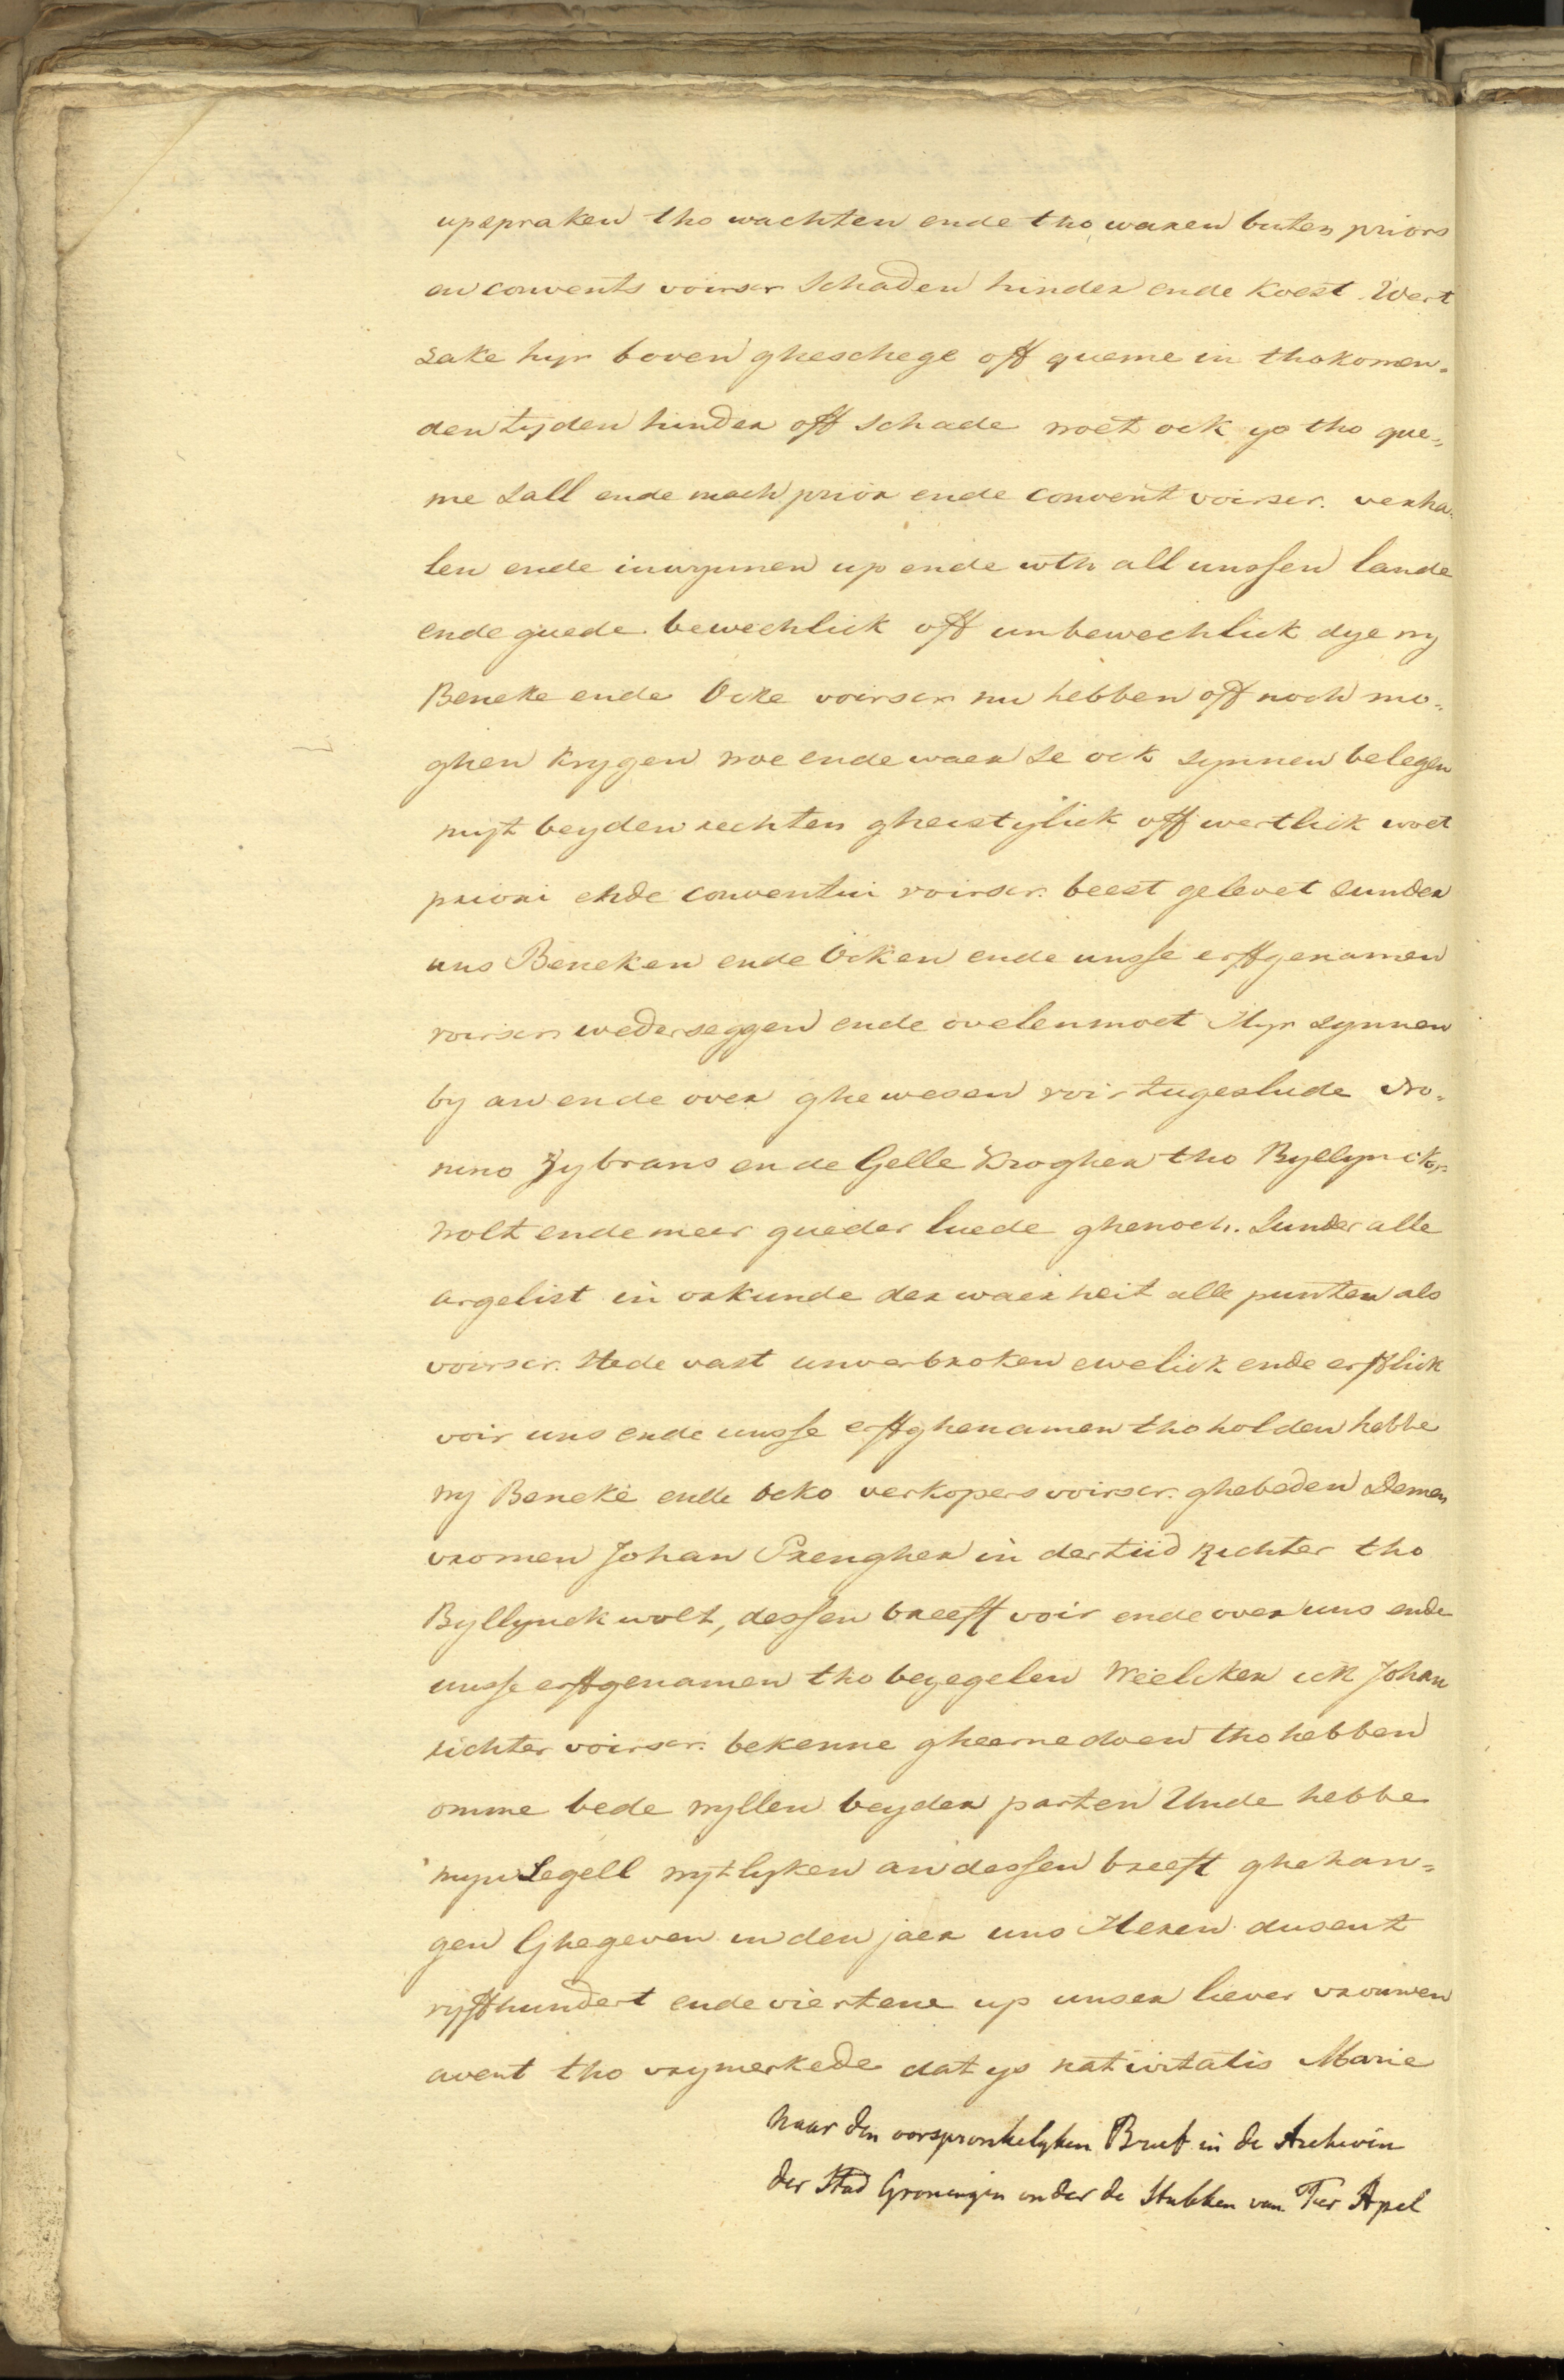 upspraken tho wachten ende tho waren buten priors
en convents voirscr schaden hinder ende koest. Wert
sake hyr boven gheschege off queme in thokomen=
den tyden hinder off schade woet ock yo tho que=
me sall ende mach prior ende convent voirscr. verha=
len ende inwynnen up ende uth all unssen lande
ende guede bewechlick off unbewechlick dye wy
Beneke ende Ocke voirscr nu hebben off noch mo=
ghen krygen woe ende waer se ock synnen belegen
myt beyden rechten gheistylick off wertlick woet
priori ende conventui voirscr. beest gelevet sunder
uns Beneken ende Ocken ende unsse erffgenamen
voirscr wederseggen ende ovelenmoet Hyr synnen
by an ende over ghewesen voir tugeslude Wo=
neno Zybrans ende Gelle Krogher tho Byllynck=
wolt ende meer gueder luede ghenoch. Sunder alle
argelist in orkunde der waerheit alle punten als
voirscr. stede vast unverbroken ewelick ende erfflick
voir uns ende unsse erffghenamen tho holden hebbe
wy Beneke ende Ocko verkopers voirscr. ghebeden demen
vromen Johan Prengher in der tiid Richter tho
Byllynck wolt, dessen breeff voir ende over uns ende
unsse erffgenamen tho bezegelen Weelcker ick Johan
richter voirscr. bekenne gheerne doen tho hebben
omme bede wyllen beyder parten Unde hebbe
myn Segell wytlyken an dessen breeft ghehan=
gen Ghegeven in den jaer uns Heren dusent
vyffhundert ende viertene up unser liever vrouwen
avent tho vrymerkede dat ys nativitatis Marie
Naar den oorspronkelyken Brief in de Archiven
der Stad Groningen onder de Stukken van Ter Apel